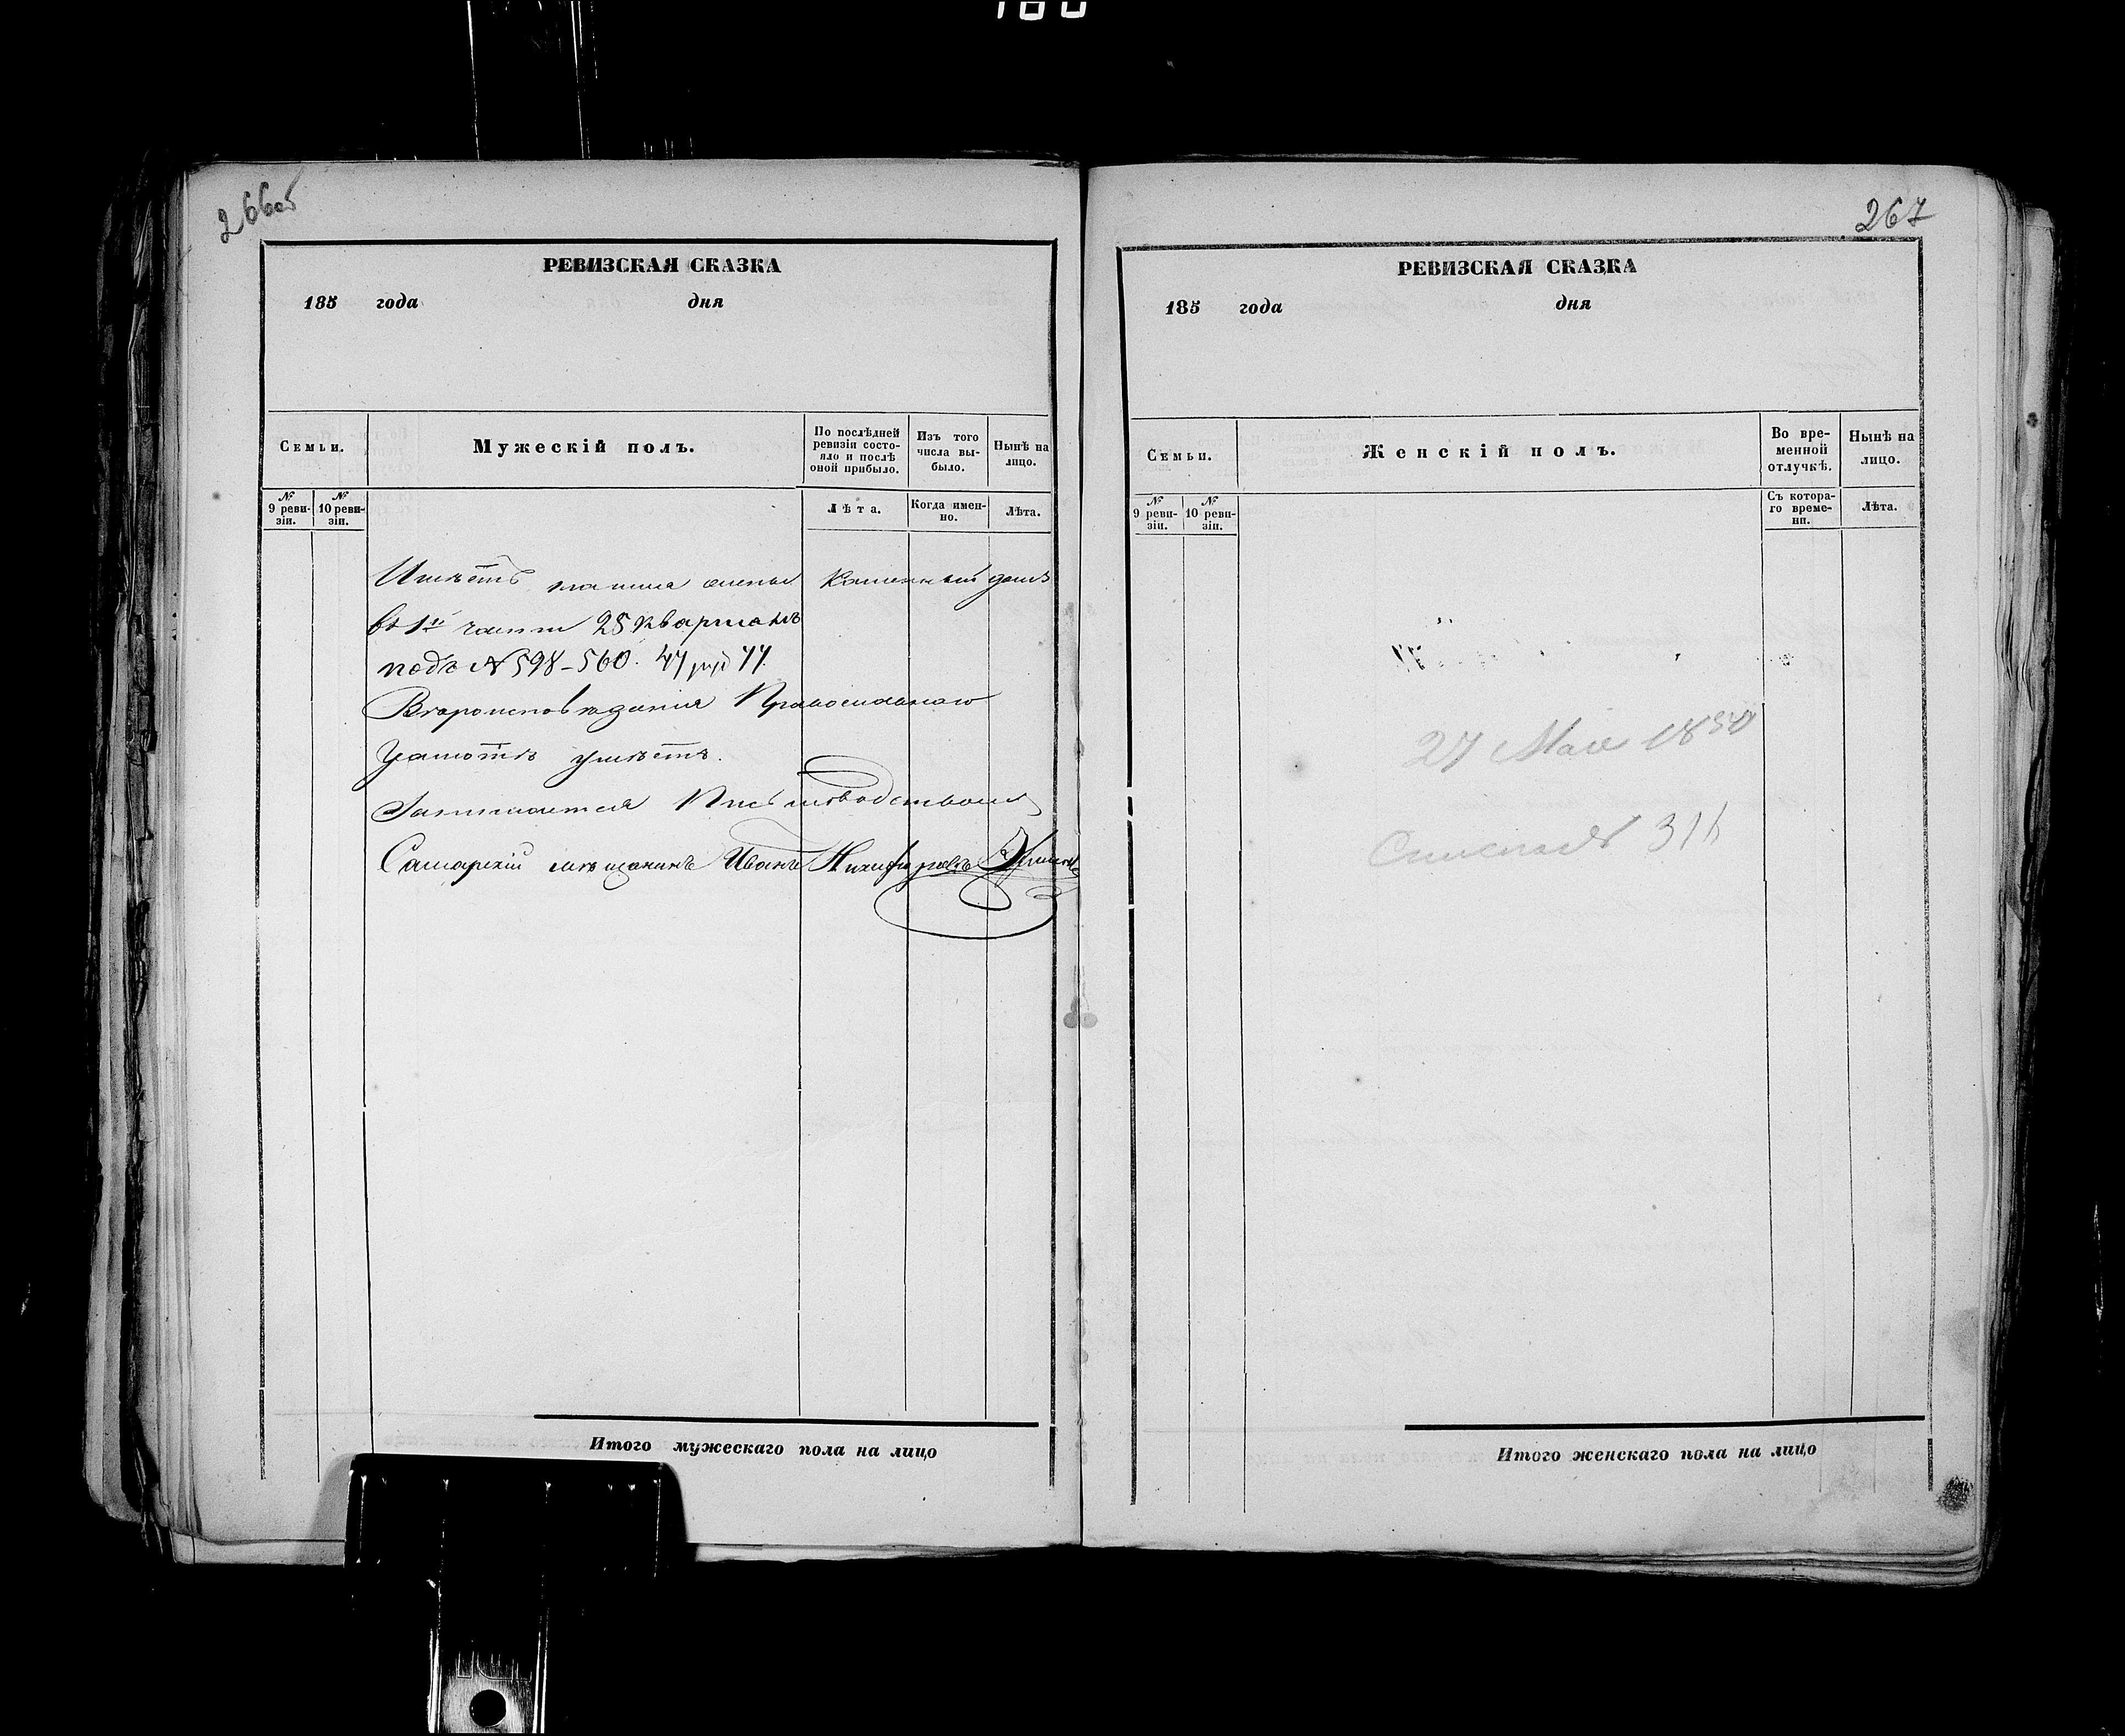 180
266об
РЕВИЗСКАЯ СКАЗКА
185 года дня
Семьи.
Мужескій полъ.
По послѣдней ревизіи состояло и послѣ оной прибыло.
Изъ того числа выбыло.
Нынѣ на лицо.
№ 9 ревизіи.
№ 10 ревизіи.
Лѣта.
Когда именно.
Лѣта.
Имѣетъ каменный домъ
въ 1й части 25 кварталѣ
подъ № 598-560. 47
Вѣроисповѣданія Православнаго
Грамотѣ умѣетъ.
Занимается Письмоводствомъ
Самарскій мѣщанинъ Иванъ Никифоровъ
Итого мужескаго пола на лицо
267
РЕВИЗСКАЯ СКАЗКА
185 года дня
Семьи.
Женскій полъ.
Во временной отлучкѣ.
Нынѣ на лицо.
№ 9 ревизіи.
№ 10 ревизіи.
Съ котораго времени.
Лѣта.
27 Мая 18
Итого женскаго пола на лицо